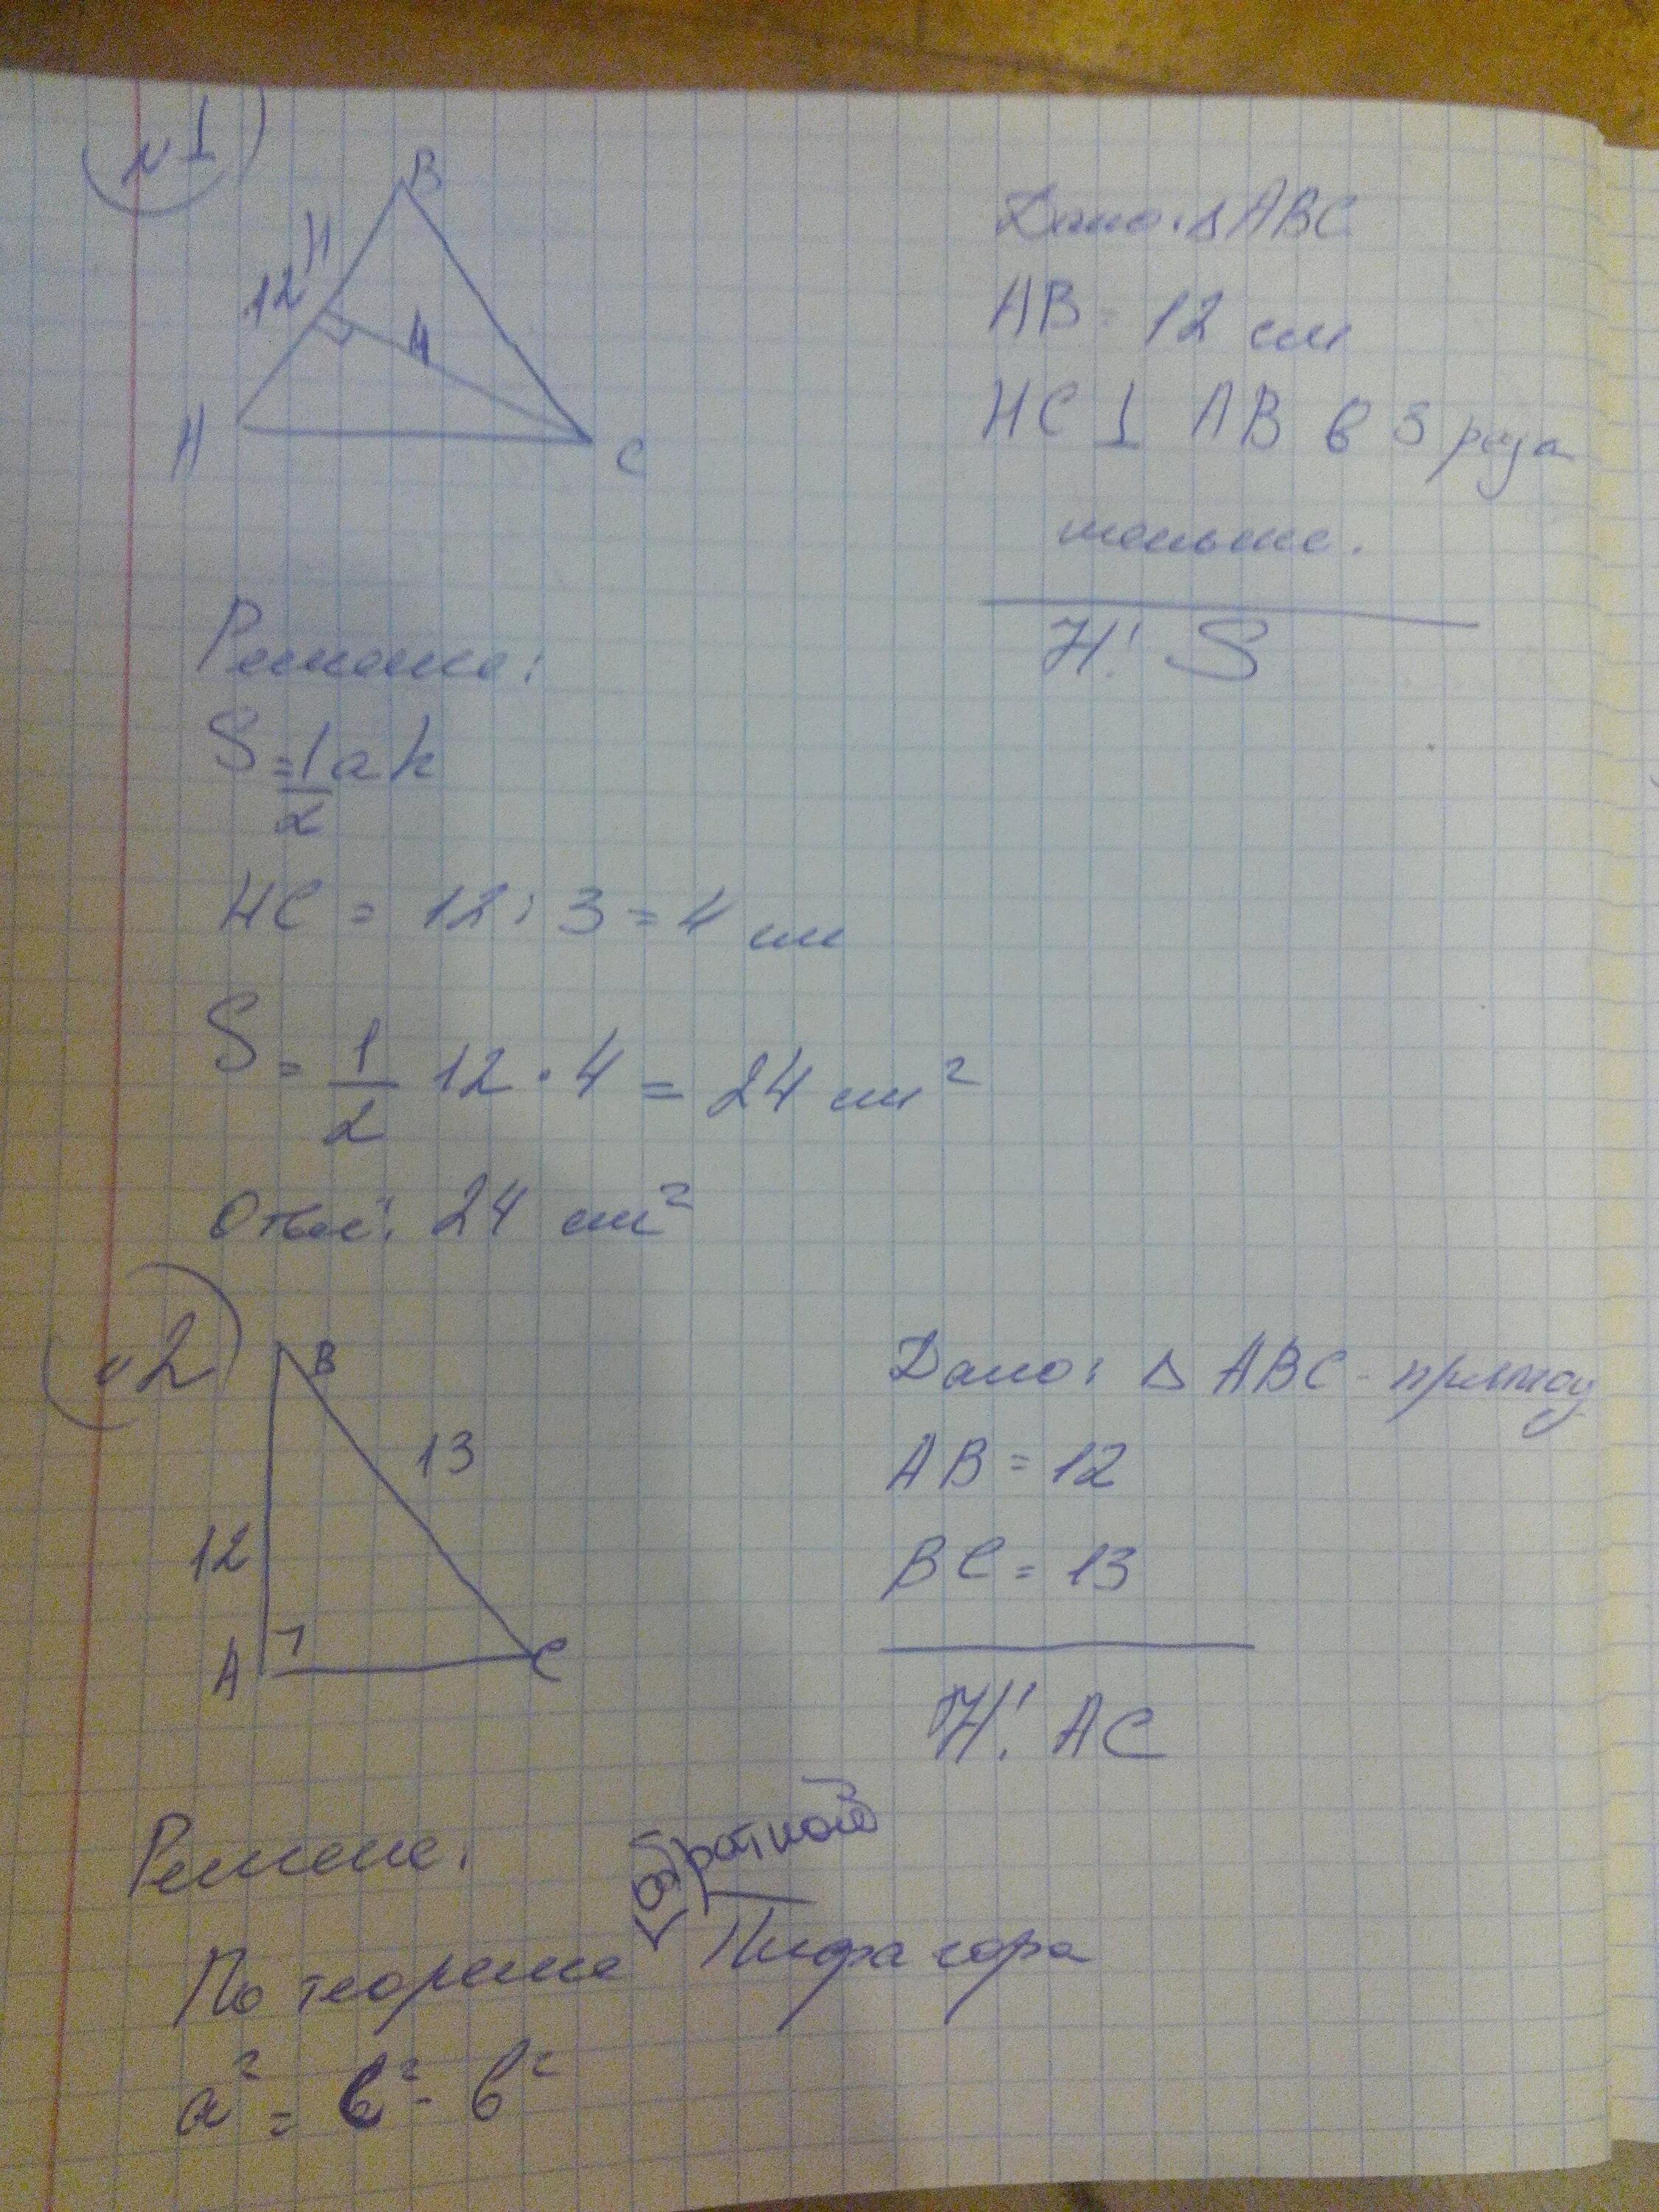 №1
B
H
12
4
A
C
Дано: △ABC
AB = 12 см
HC ⊥ AB в 3 раза
меньше.
Н! S
Решение:
S = 1/2 a h
HC = 12 : 3 = 4 см
S = 1/2 12 · 4 = 24 см²
Ответ: 24 см²
№2
B
13
12
A
C
Дано: △ ABC - прямоу
AB = 12
BC = 13
Н! AC
Решение:
обратной
По теореме Пифагора
a² = c² - b²